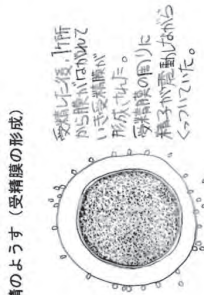 精のようす（受精膜の形成）
受精した後、1ケ所
から膜がはがれて
いき受精膜が
形成された。
受精膜の周りに
精子が運動しながら
くっついていた。